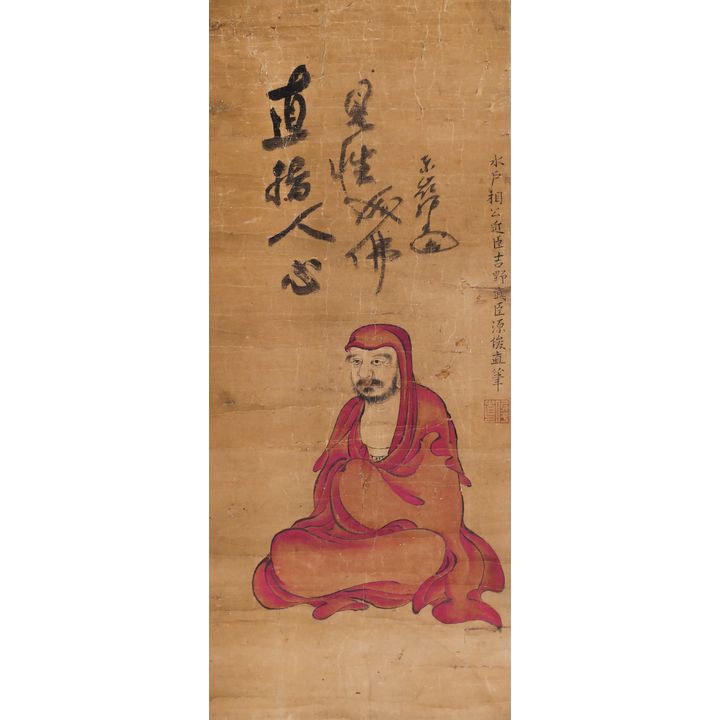 直指人心
見性成佛
水戸相公近臣吉野武臣源俊直筆